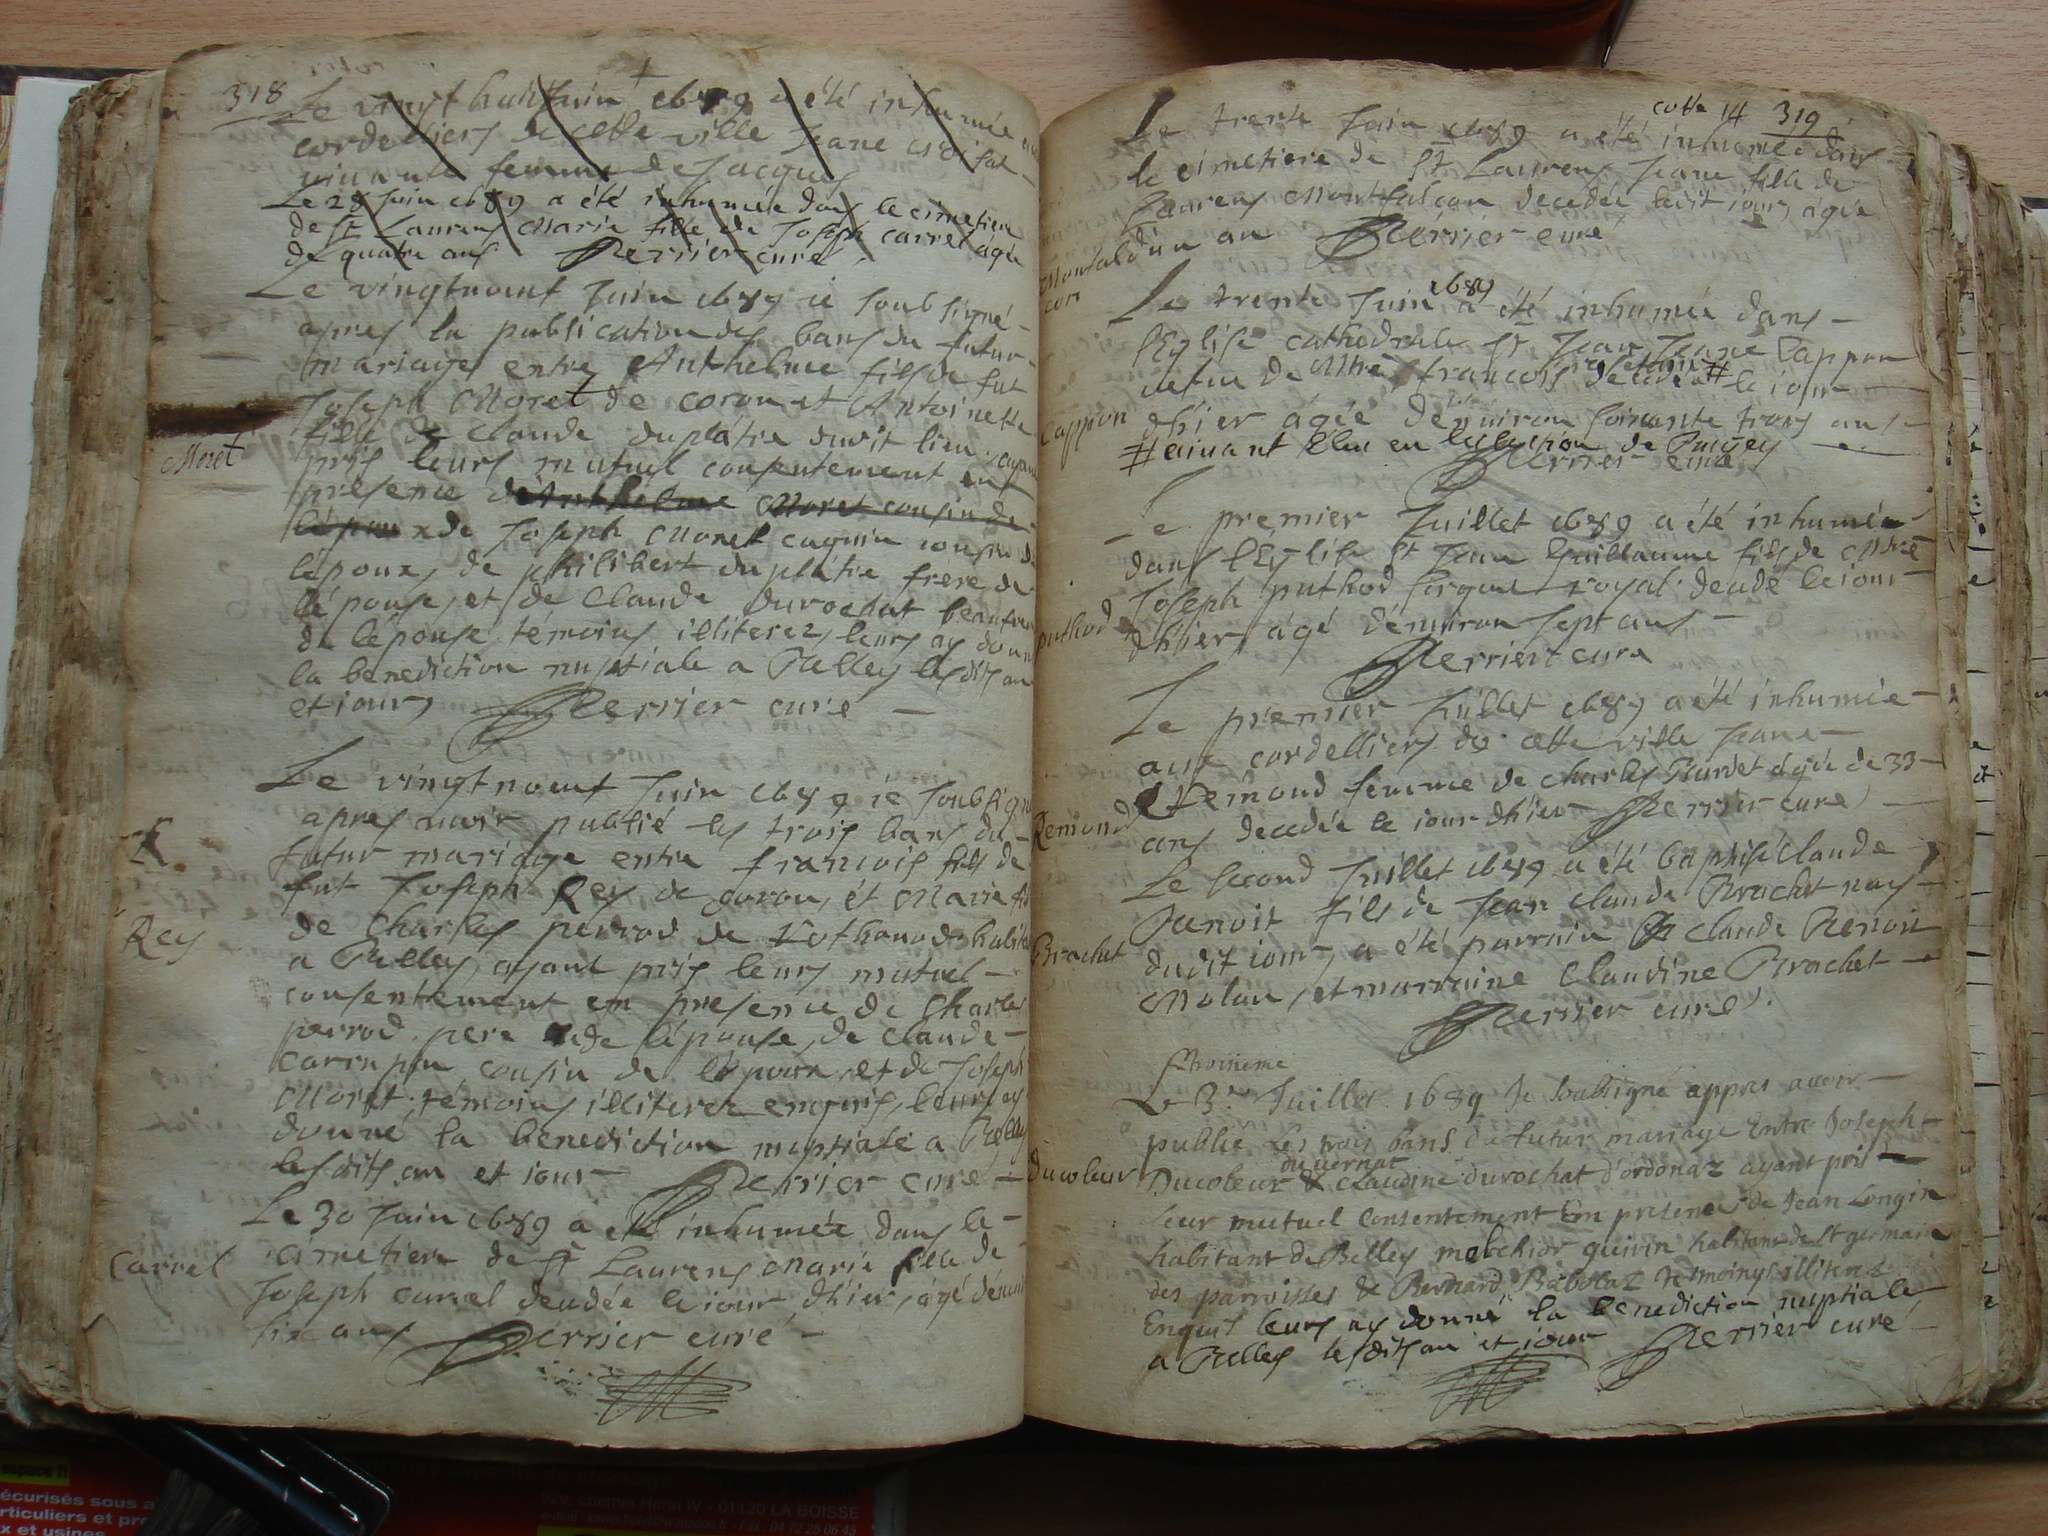 318
Le vingt huit Juin 1689 a été inhumée aux
cordelliers de cette ville Jeane
vivante femme de Jacques
Le 28 Juin 1689 a été inhumée dans le cimetiere
de St Laurens Marie fille de Joseph Carrel agée
de quatre ans Perrier curé
Le vingtneuf Juin 1689 ie soubsigné
apres la publication des bans du futur
mariage entre Anthelme fils de fut
Joseph Moret de coron et Antoinette
fille de Claude duplâtre dudit lieu ayant
pris leurs mutuel consentement en
presence d'Anthelme Moret cousin de
lépoux de Joseph Moret cousin de
lépoux, de philibert duplâtre frere de
lépouse, et de Claude durochat beaufrere
de lépouse témoins illiterez, leurs ay donné
la benediction nuptiale a Belley lesdits an
et iour, Perrier curé
Moret
Le vingtneuf Juin 1689 ie soubsigné
apres avoir publié les trois bans du
futur mariage entre francois fils de
fut Joseph Rey de coron, et Marie fille
de Charles perrod de Vothonod habitant
a Belley, ayant pris leurs mutuel
consentement en presence de Charles
perrod pere de lépouse, de Claude
cousin de lépoux, et de Joseph
Moret, témoins illiterez enquis, leurs ay
donné la benediction nuptiale a Belley
lesdits an et iour Perrier curé
R
Rey
Le 30 Juin 1689 a été inhumée dans le
cimetiere de St Laurens Marie fille de
Joseph carrel decedée le iour d'hier, agé d'environ
six ans Perrier curé
Carrel
cotte 14 319
Le trente Juin 1689 a été inhumée dans
le cimetiere de St Laurens Jeane fille de
Laurens Montfalcon decedée ledit iour, agée
d'un an Perrier curé
Monfal
con
Le trente Juin 1689 a été inhumée dans
l'Eglise cathedrale St Jean Jeane Cappon
vefve de Mtre francois decedée # le iour
d'hier agée d'environ soixante trois ans
# vivant Elu en l'election de Bugey
Perrier curé
Cappon
Le premier Juillet 1689 a été inhumée
dans l'Eglise St Jean Guillaume fils de Mtre
Joseph puthod sergent royal decedé le iour
d'hier, agé d'environ sept ans
Perrier curé
puthod
Le premier Juillet 1689 a été inhumée
aux cordelliers de cette ville Jeane
Remond femme de Charles Burdet agée de 33
ans decedée le iour d'hier Perrier curé
Remond
Le second Juillet 1689 a été baptisé Claude
Benoit fils de Jean Claude Brochet nay
dudit iour, a été parrain Claude Benoit
Molan, et marraine Claudine Brochet
Perrier curé
Brochet
troisieme
Le 3e Juillet 1689 Je soubsigné appres avoir
publié les trois bans du futur mariage Entre Joseph
Ducoleur & Claudine durochat d'ordonaz ayant pris
leur mutuel Consentement En presence de Jean Longin
habitant de Belley melchior guirin habitant de St germain
des parroisses & Bernard Babolaz tesmoings illiterez
Enquis leurs ay donné la benediction nuptiale
a Belley lesdits an et iour Perrier curé
ducoleur
espace
écurisés sous
rticuliers et pr
x et usines
01120 LA BOISSE